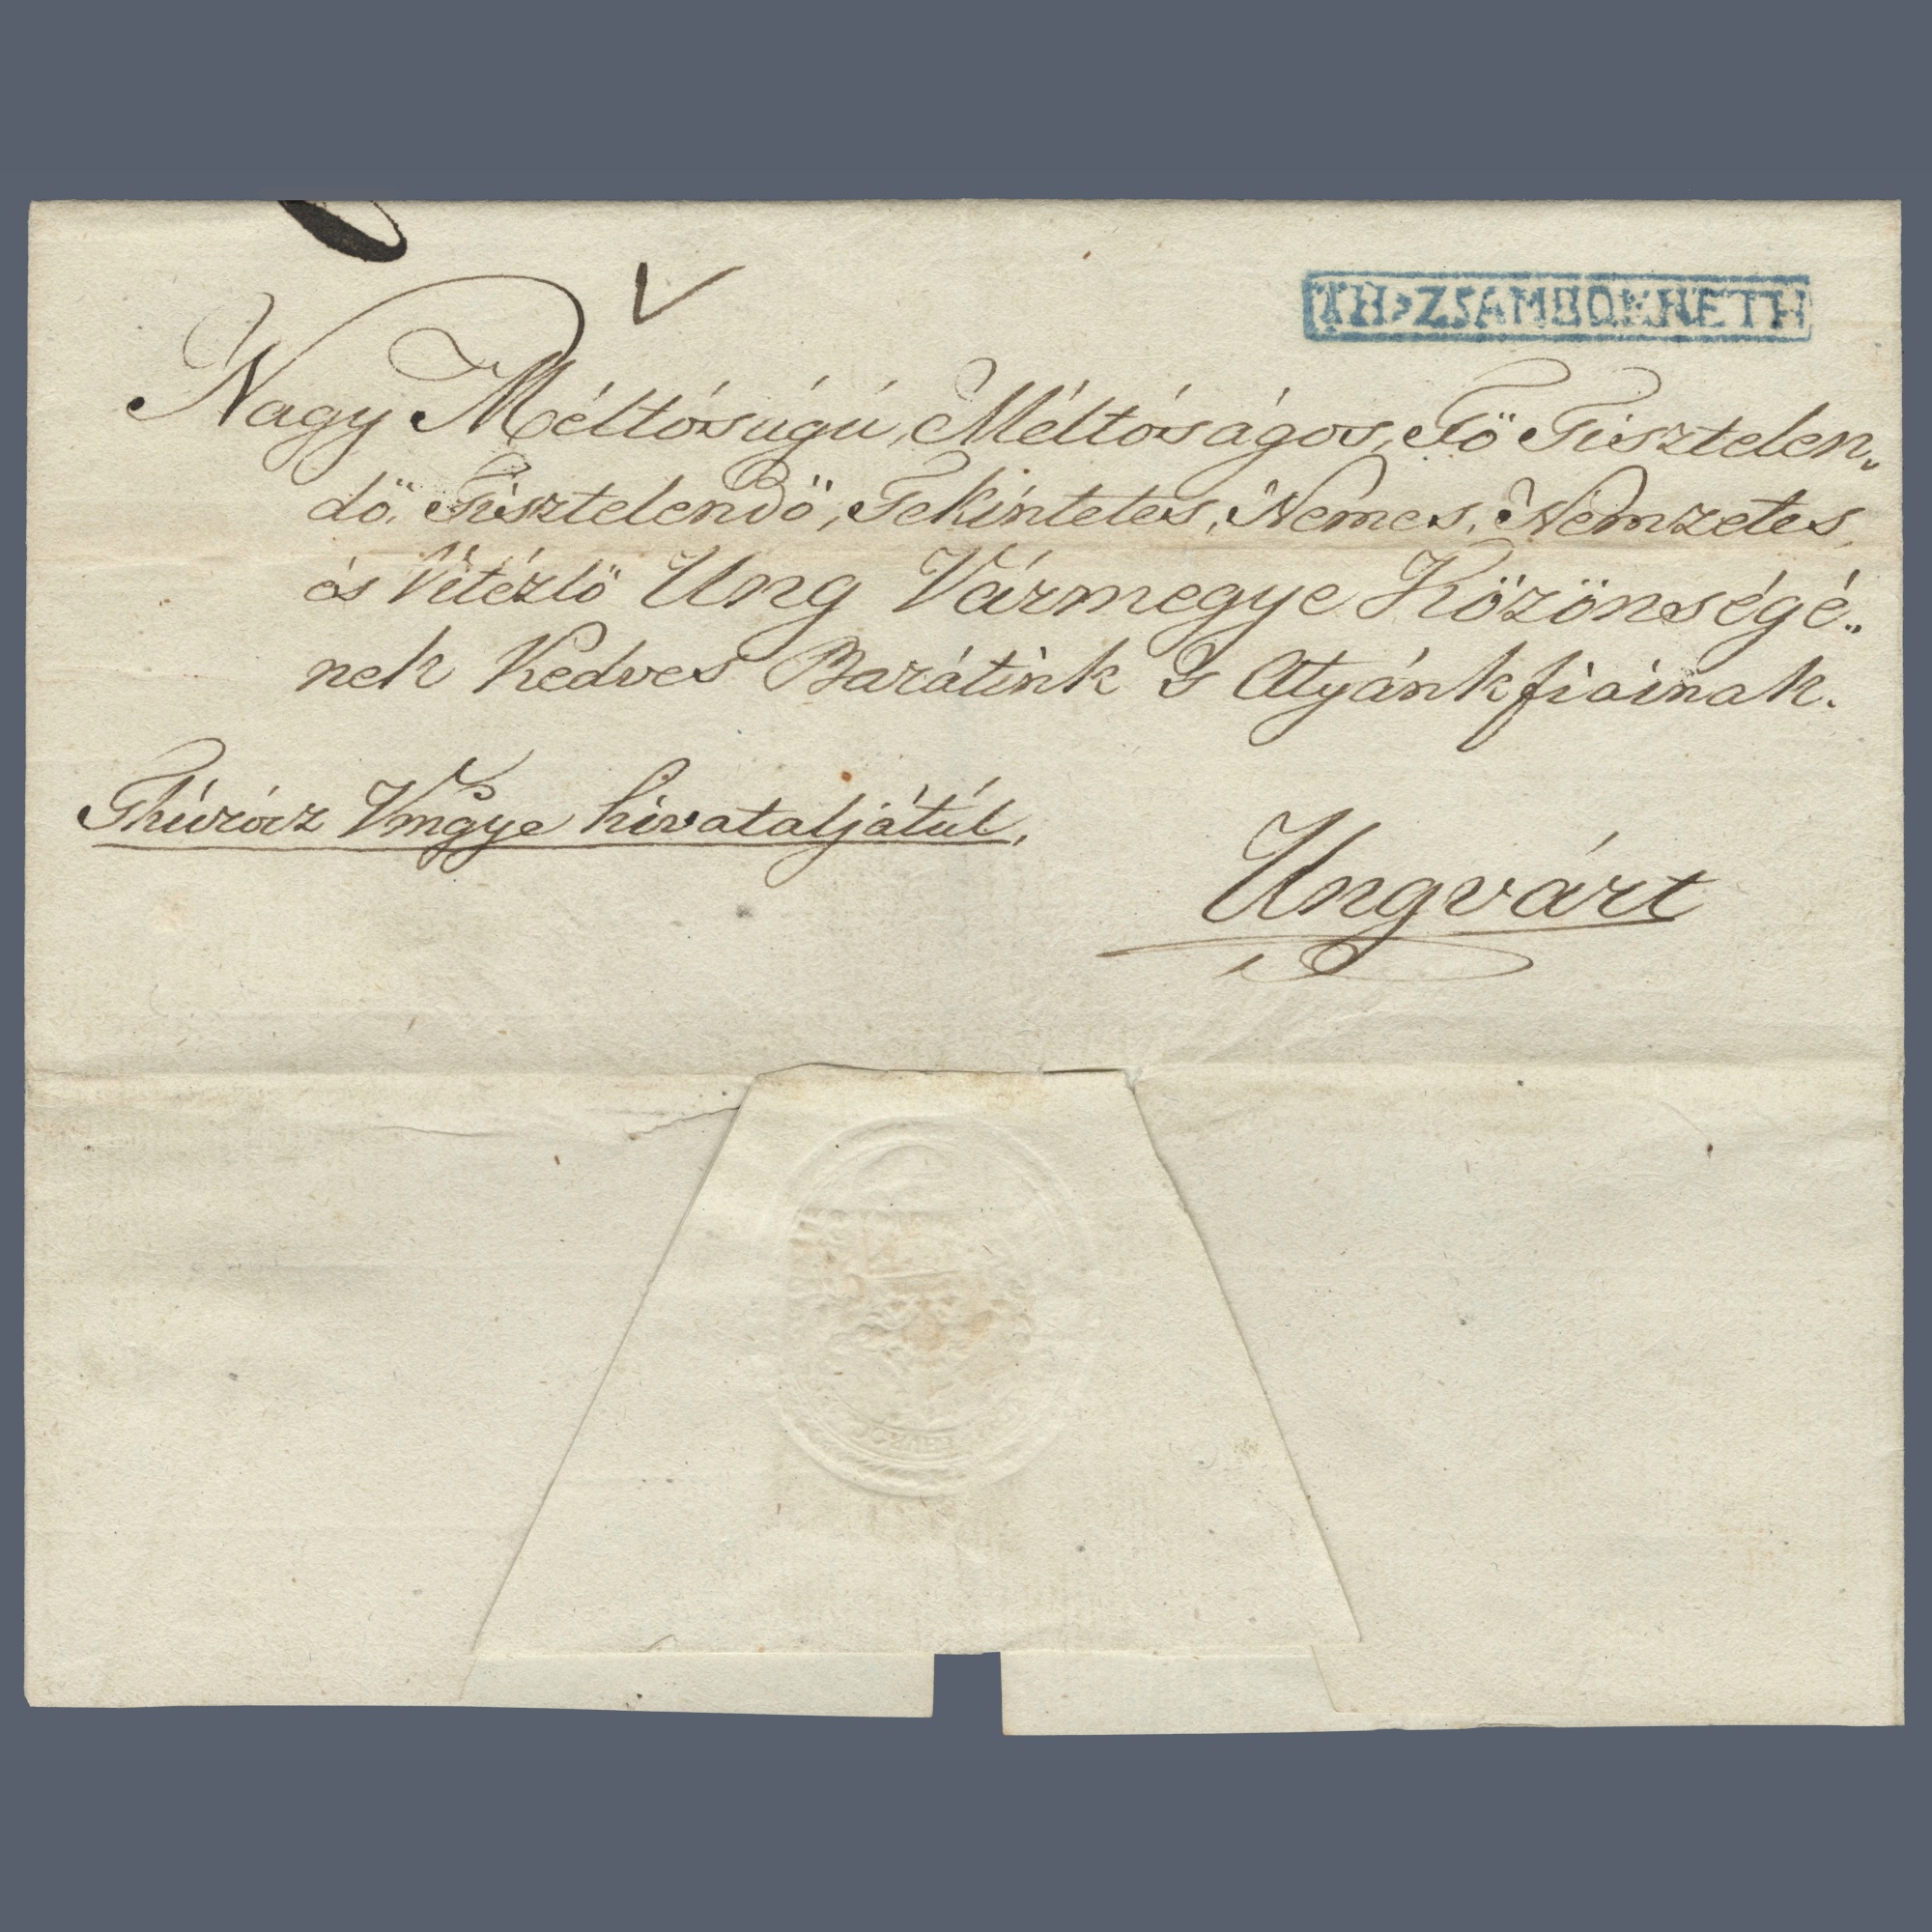 TH.ZSAMBOKRETH
Nagy Méltóságú, Méltóságos, Fö Tisztelen„
dö, Tisztelendö, Tekintetes, Nemes, Nemzetes,
és Vitézlö Ung Vármegye Közönségé„
nek Kedves Barátink 's Atyánkfiainak.
Thúrócz Vmgye hivataljátúl,
Ungvárt